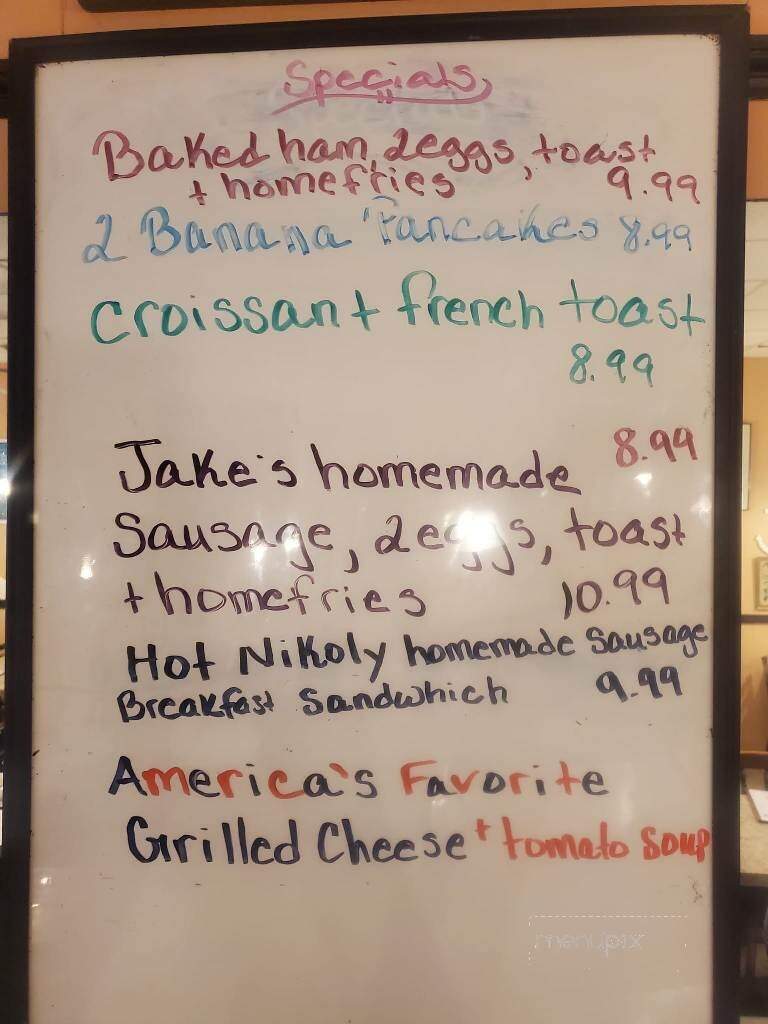 Specials
Baked ham, 2eggs, toast
+ homefries 9.99
2 Banana Pancakes 8.99
Croissant french toast
8.99
8.99
Jake's homemade
Sausage, 2eggs, toast
+ homefries 10.99
Hot Nikoly homemade Sausage
Breakfast Sandwhich 9.99
America's Favorite
Grilled Cheese + tomato Soup
menupix